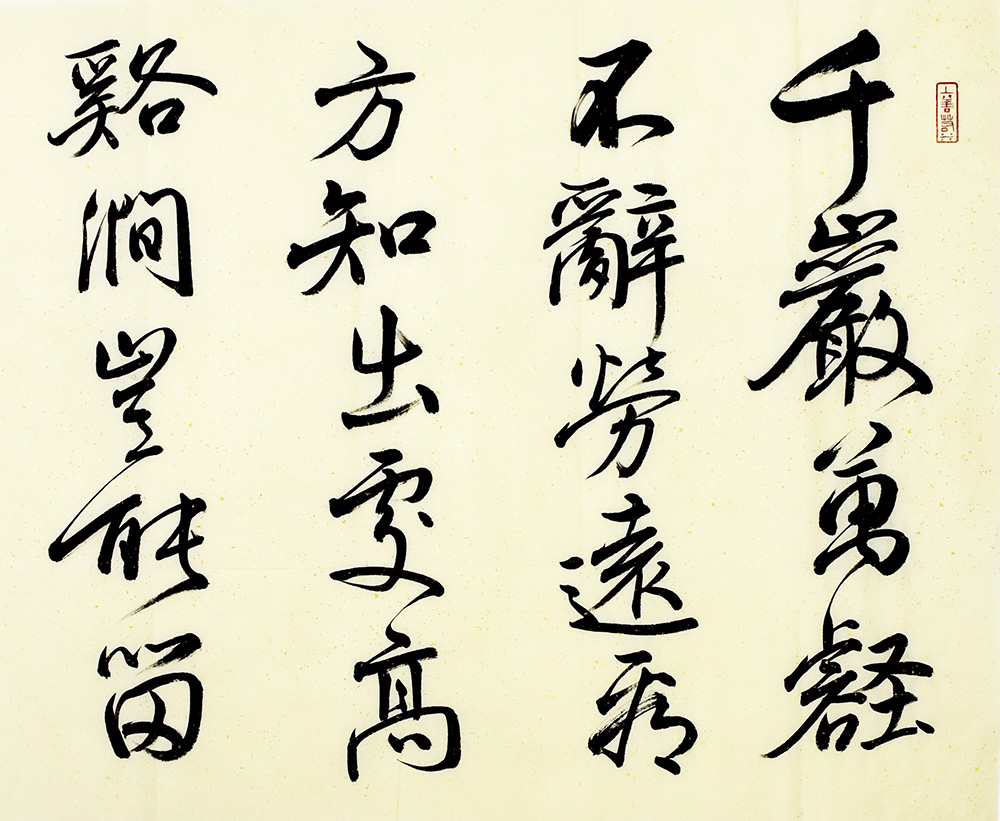 千巖萬壑
不辭勞遠看
方知出處高
谿澗豈能留